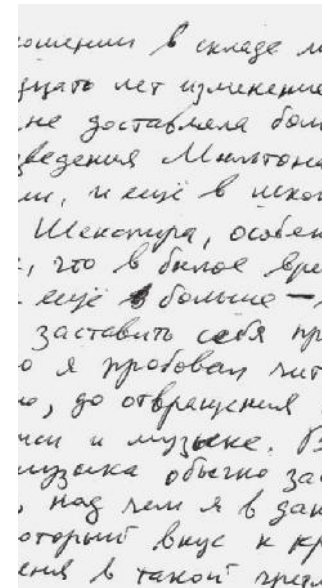 ошении в складе м
дцать лет изменение
не доставляла бол
ведения Мильтона
ми, и ещё в школ
Шекспира, особен
, что в былое вре
ещё в больше —
заставить себя пр
о я пробовал чит
о, до отвращения
иси и музыке. В
музыка обычно за
, над чем я в дан
оторый вкус к кр
ения в такой